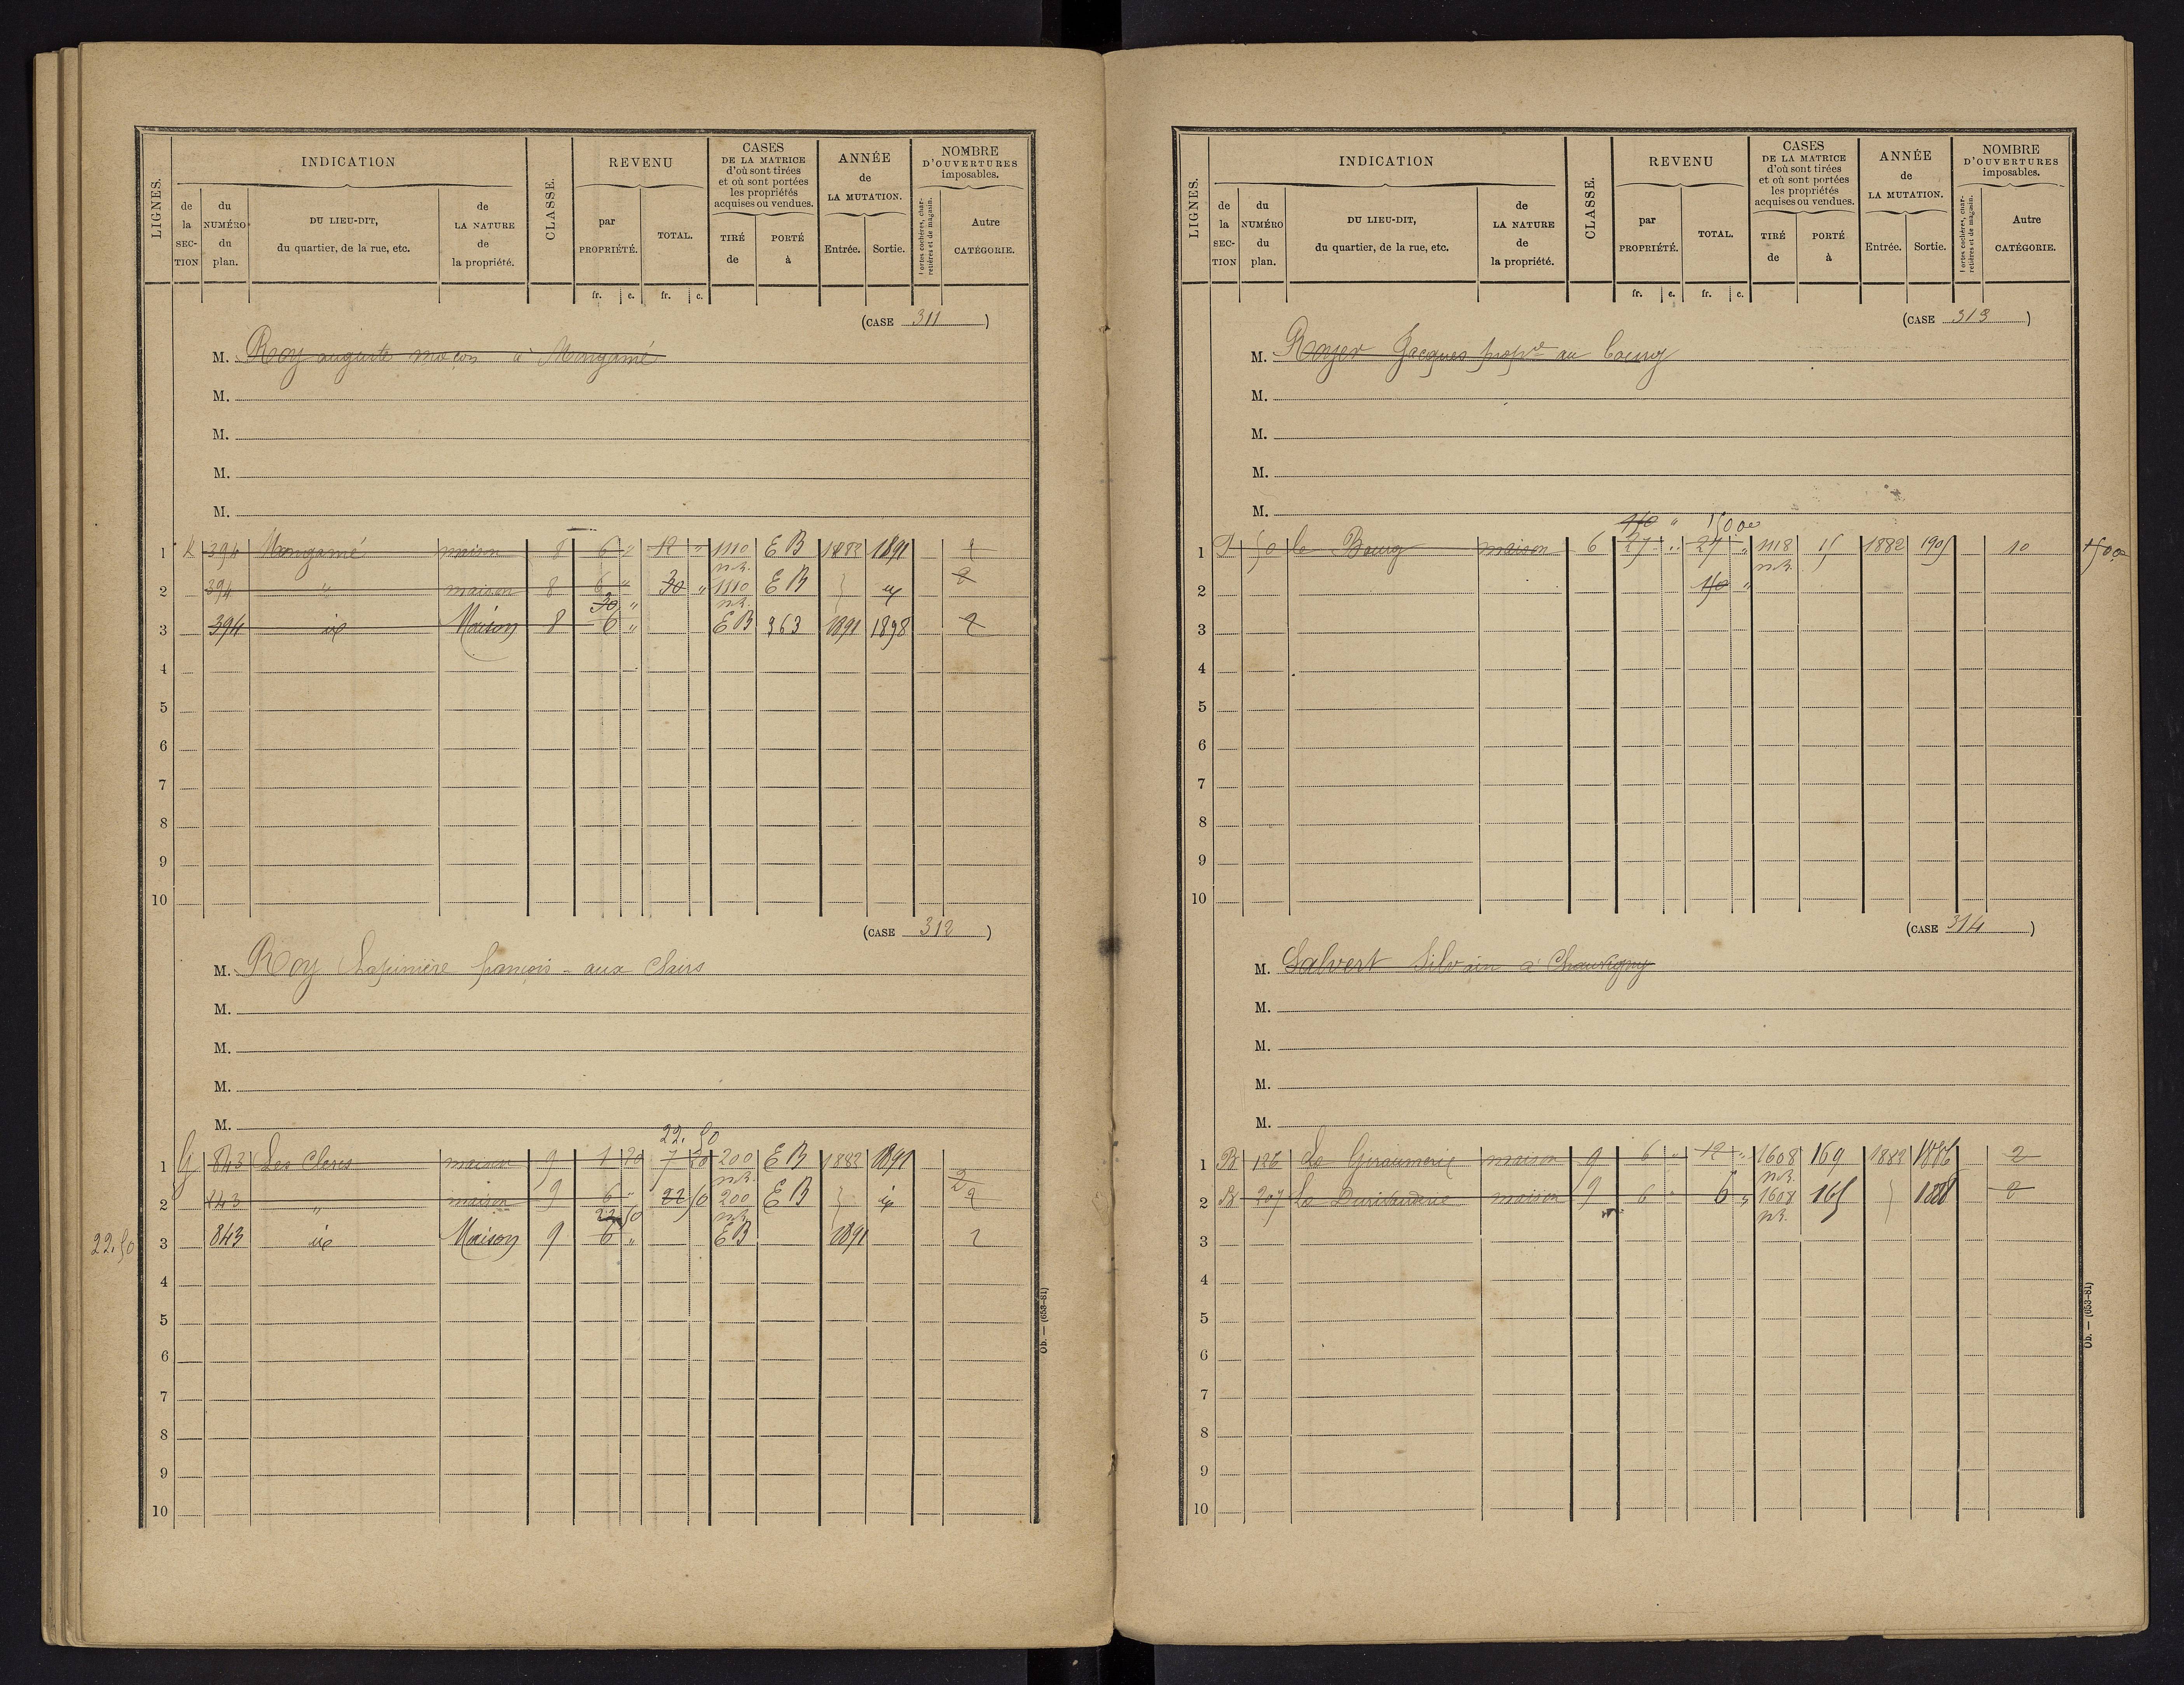 LIGNES.
INDICATION
de la SECTION
du NUMÉRO du plan.
DU LIEU-DIT, du quartier, de la rue, etc.
de LA NATURE de la propriété.
CLASSE.
REVENU
par PROPRIÉTÉ.
TOTAL.
fr. c. fr. c.
CASES
DE LA MATRICE
d'où sont tirées
et où sont portées
les propriétés
acquises ou vendues.
TIRÉ de
PORTÉ à
ANNÉE
de
LA MUTATION.
Entrée. Sortie.
NOMBRE
D'OUVERTURES
imposables.
Portes cochères, charretières et de magasin.
Autre CATÉGORIE.
(CASE 311)
M. Roy auguste maçon à Mongamé
M.
M.
M.
M.
1 K 394 Mongamé maison 8 6 " 12 " 1110 E B 1882 1891 1
n.R.
2 394 " maison 8 6 " 30 " 1110 E B } id 2
30 n.R.
3 394 id Maison 8 6 " E B 363 1891 1898 2
4
5
6
7
8
9
10
(CASE 312)
M. Roy françois - aux Clairs
M.
M.
M.
M.
22.50
1 G 843 Les Clares maison 9 1 20 7 20 200 E B 1882 1891
n.R. 2
2 843 " maison 9 6 " 22 50 200 E B } id 2
22 50 n.R.
22.50
3 843 id Maison 9 6 " E B 1891 2
4
5
6
7
8
9
10
Ob. — (653-81)
LIGNES.
INDICATION
de la SECTION
du NUMÉRO du plan.
DU LIEU-DIT, du quartier, de la rue, etc.
de LA NATURE de la propriété.
CLASSE.
REVENU
par PROPRIÉTÉ.
TOTAL.
fr. c. fr. c.
CASES
DE LA MATRICE
d'où sont tirées
et où sont portées
les propriétés
acquises ou vendues.
TIRÉ de
PORTÉ à
ANNÉE
de
LA MUTATION.
Entrée. Sortie.
NOMBRE
D'OUVERTURES
imposables.
Portes cochères, charretières et de magasin.
Autre CATÉGORIE.
(CASE 313)
M. Royer Jacques prop.re au bourg
M.
M.
M.
M.
150 " 150 00
1 50 le Bourg maison 6 27 " 27 " 1118 15 1882 1905 10 150 00
n.R.
2 150 "
3
4
5
6
7
8
9
10
(CASE 314)
M. Salvert Silvain à Chauvigny
M.
M.
M.
M.
1 B 126 La Giraumerie maison 9 6 " 12 " 1608 169 1882 1886 2
n.R.
2 B 207 La maison 9 6 " 6 " 1608 165 } 1888 2
n.R.
3
4
5
6
7
8
9
10
Ob. — (653-81)